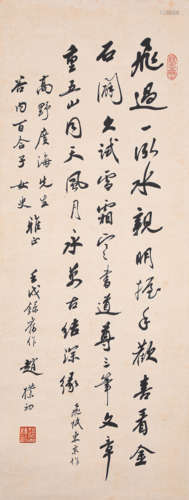 飛過一泓水親明握手歡喜看金
石開久試雪霜寒書道尊三筆文章
重五山同天風月永萬古結深緣
飛抵東京作
高野度海先生
谷内百合子女史 雅正
壬戌錄舊作 趙樸初